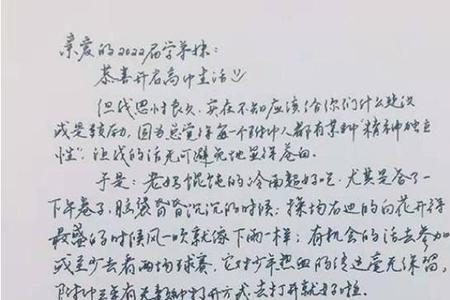 亲爱的2022届学弟妹：
恭喜开启高中生活
但我思忖良久，实在不知应该给你们什么建议
或是鼓励，因为总觉得每一个附中人都有某种“精神独立
性”，让我的话无可避免地显得苍白。
于是：老妈馄饨的冷面超好吃，尤其是答了一
下午卷子，脑袋昏昏沉沉的时候；操场右边的白花开得
最盛的时候风一吹就像下雨一样；有机会的话去参加
或至少去看两场球赛，它对少年热血的传达毫无保留，
附中三年有无数种打开方式，去打开就好啦